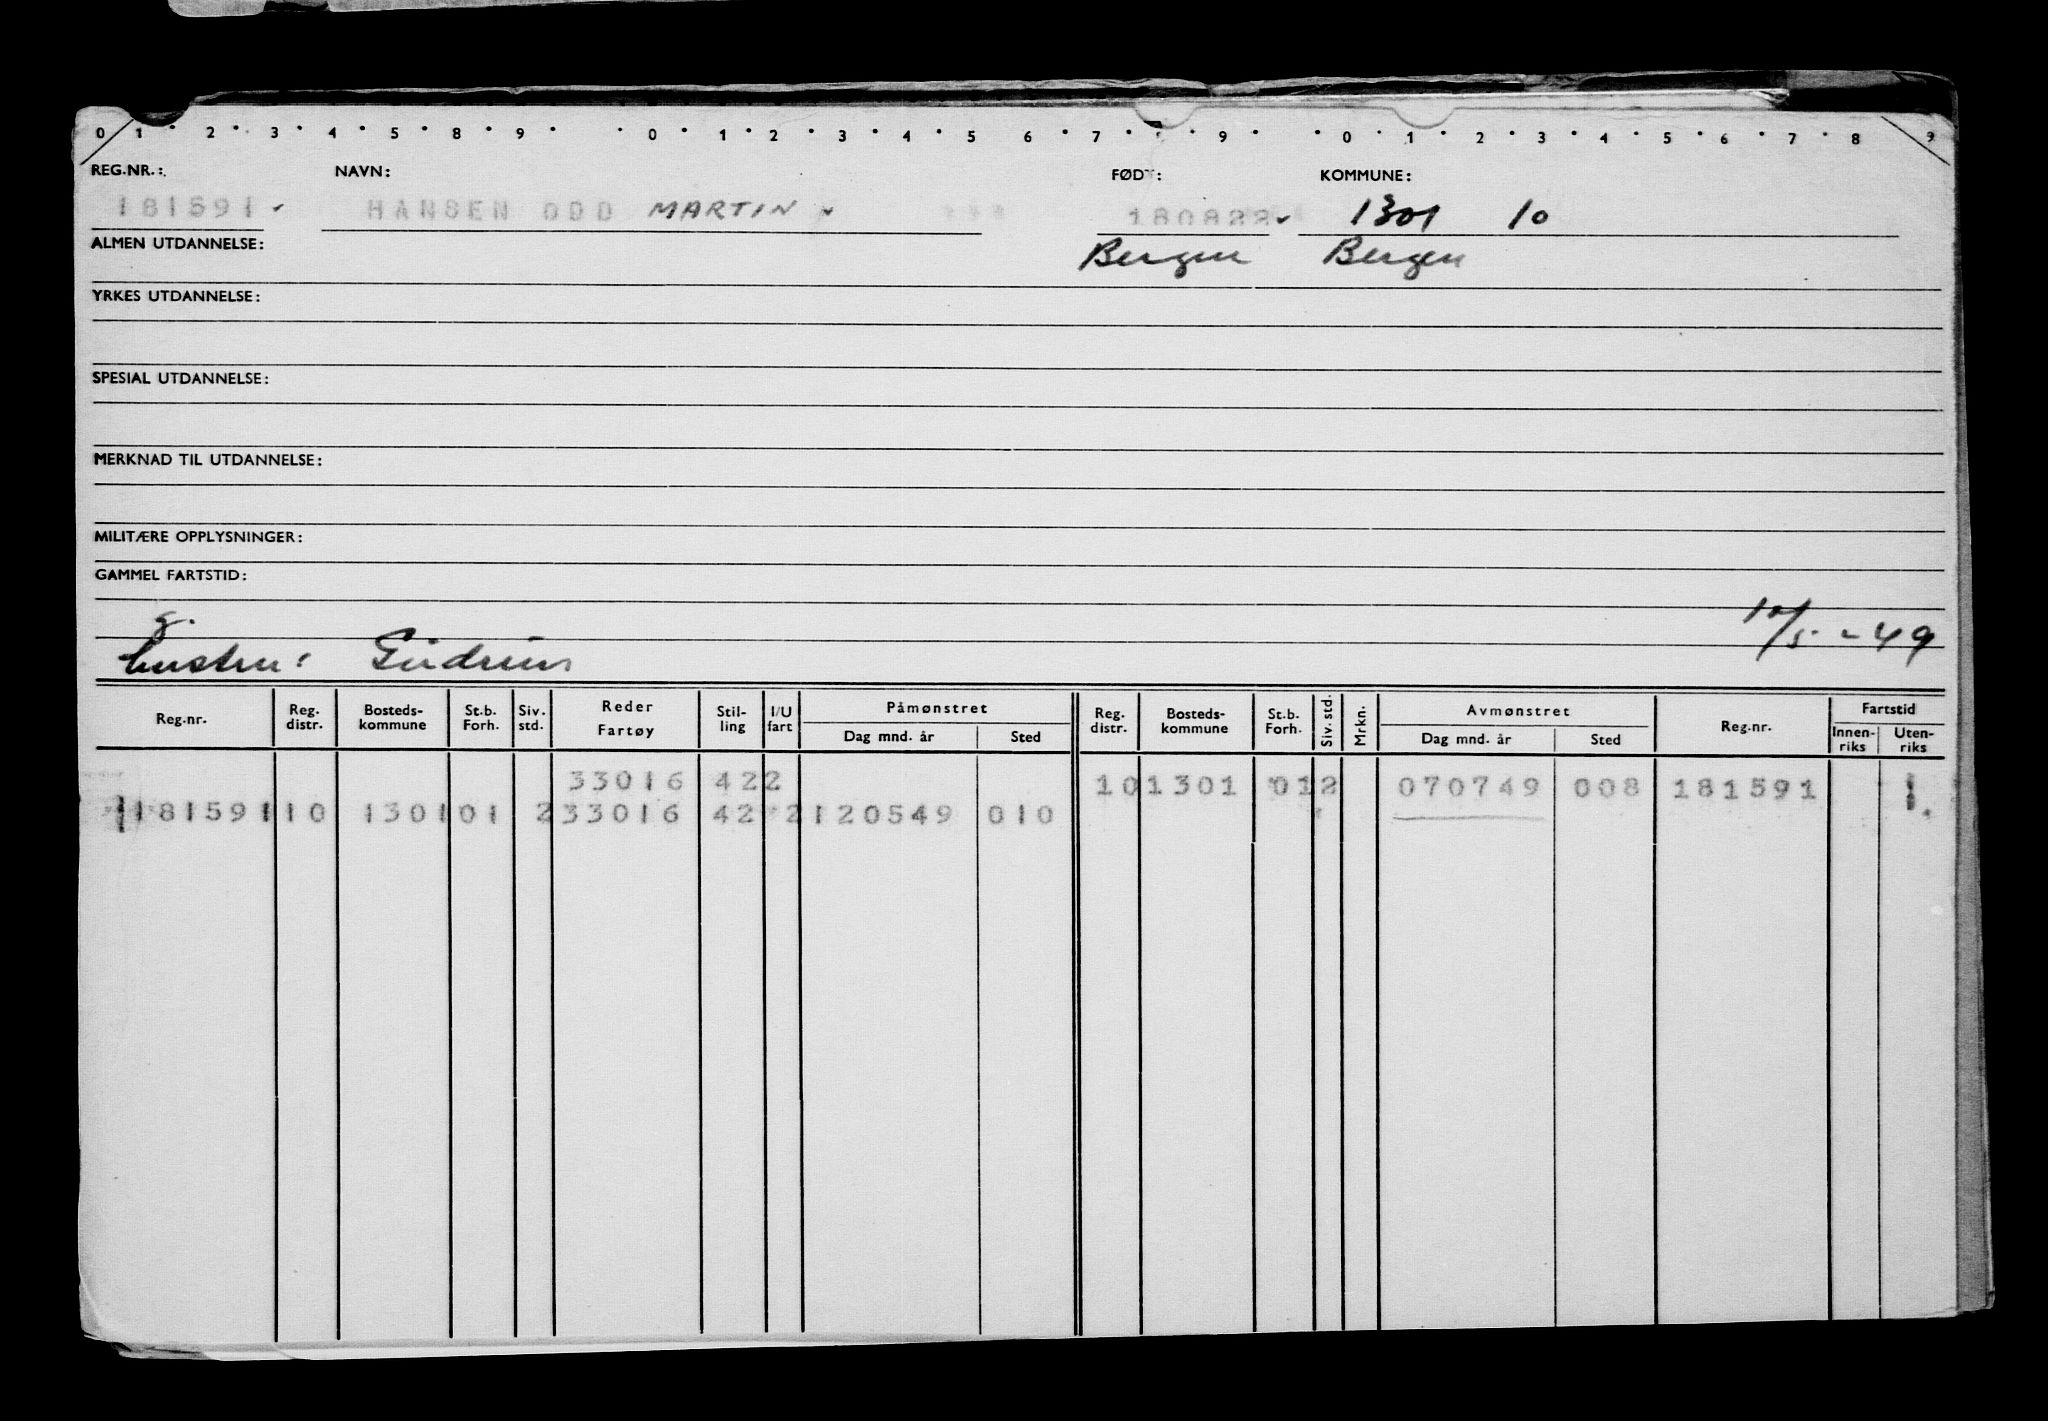 0 1 2 3 4 5 8 9 0 1 2 3 4 5 6 7 8 9 0 1 2 3 4 5 6 7 8 9
REG.NR.: NAVN: FØDT: KOMMUNE:
181591 HANSEN ODD MARTIN 180822 1301 10
ALMEN UTDANNELSE: Bergen Bergen
YRKES UTDANNELSE:
SPESIAL UTDANNELSE:
MERKNAD TIL UTDANNELSE:
MILITÆRE OPPLYSNINGER:
GAMMEL FARTSTID:
g. 10/5-49
hustru: Gudrun
Reg.nr. Reg. distr. Bosteds- kommune St.b. Forh. Siv. std. Reder Fartøy Stil- ling I/U fart Påmønstret Dag mnd. år Sted Reg. distr. Bosteds- kommune St.b. Forh. Siv. std. Mrkn. Avmønstret Dag mnd. år Sted Reg.nr. Fartstid Innen- riks Uten- riks
33016 422 10 1301 01 2 070749 008 181591 1
181591 10 1301 01 2 33016 42 2 120549 010 1.